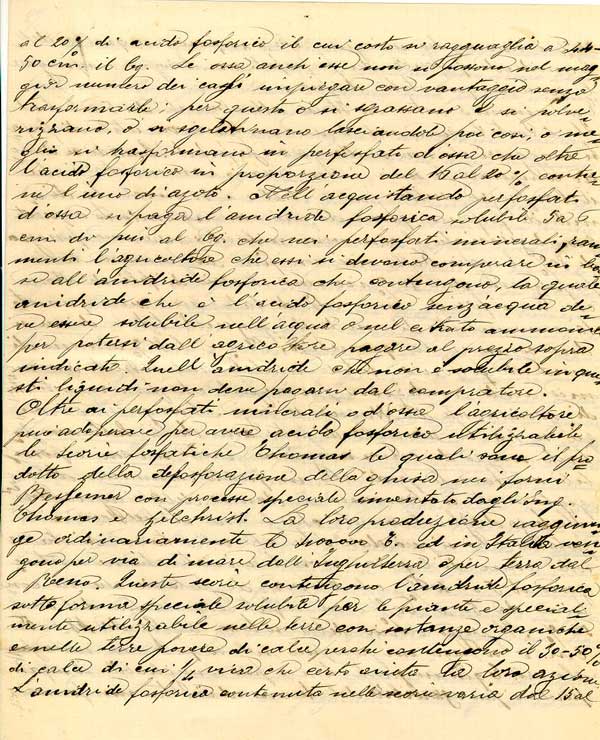 al 20% di acido fosforico il cui costo si ragguaglia a 44-
50 cm. il Cg. Le ossa anch'esse non si possono nel mag-
gior numero dei casi impiegare con vantaggio senza
trasformarle: per questo o si sgrassano e si polve-
rizzano, o si sgelatinano lasciandole poi così, o me-
glio si trasformano in perfosfati d'ossa che oltre
l'acido fosforico in proporzione del 15 al 20% contie-
ne l'uno di azoto. Nell'acquistando perfosfati
d'ossa si paga l'anidride fosforica solubile 5 a 6
cm. di più al Cg. che nei perfosfati minerali,
menti l'agricoltore che essi si devono comperare in ba
se all'anidride fosforica che contengono, la quale
anidride che è l'acido fosforico senz'acqua de-
ve essere solubile nell'acqua o nel citrato ammonico
per potersi dall'agricoltore pagare al prezzo sopra
indicato. Quell'anidride che non è solubile in que-
sti liquidi non deve pagarsi dal compratore.
Oltre ai perfosfati minerali o d'ossa l'agricoltore
può adoperare per avere acido fosforico utilizzabile
le scorie fosfatiche Thomas le quali sono il pro-
dotto della defosforazione della ghisa nei forni
Bessemer con processo speciale inventato dagli Ing.
Thomas e Gilchrist. La loro produzione raggiun-
ge ordinariamente le T. ed in Italia ven-
gono per via di mare dall'Inghilterra o per terra dal
Reno. Queste scorie contengono l'anidride fosforica
sotto forma speciale solubile per le piante e special-
mente utilizzabile nelle terre con sostanze organiche
e nelle terre povere di calce perché contengono il 30-50%
di calce di cui 1/4 viva che certo aiuta la loro azione
L'anidride fosforica contenuta nelle scorie varia dal 15 al